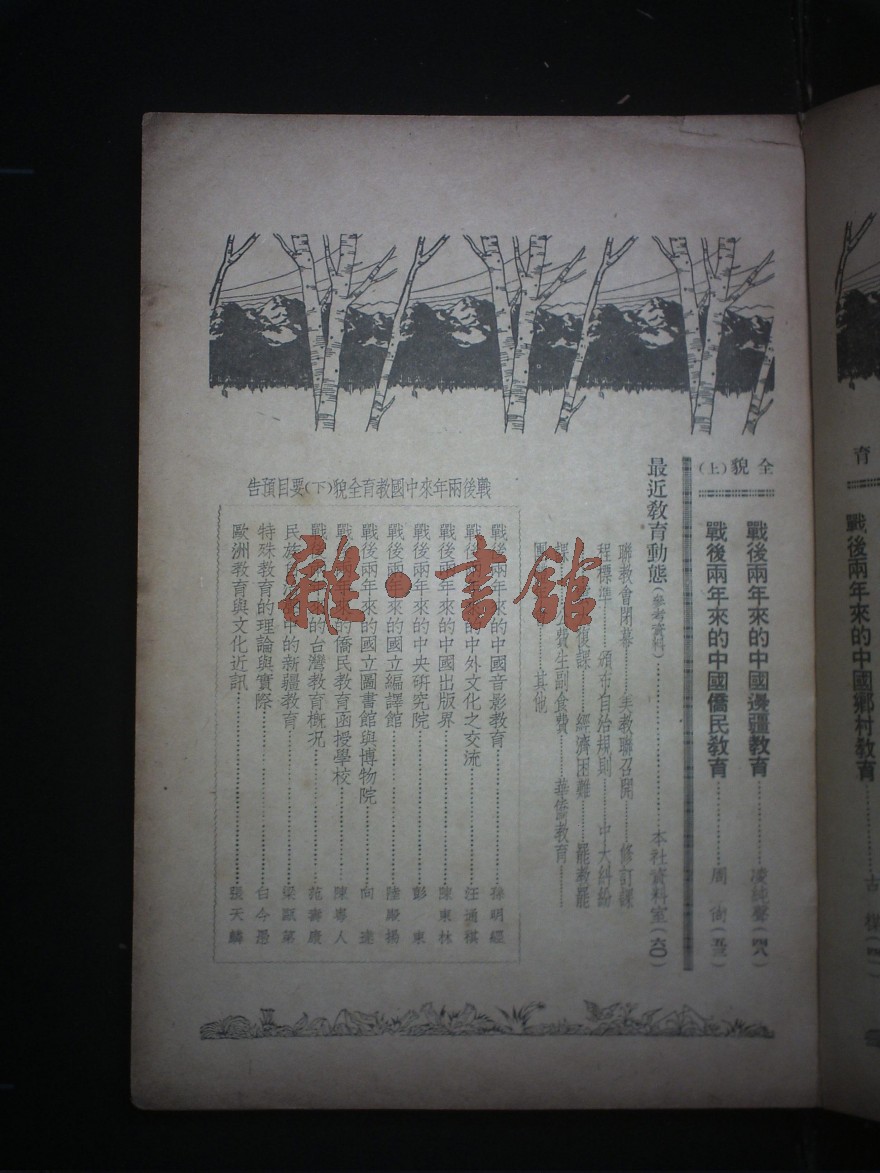 育
戰後兩年來的中國鄉村教育
全貌(上)
戰後兩年來的中國邊疆教育 凌純聲(四八)
戰後兩年來的中國僑民教育 周尚(五三)
最近教育動態(參考資料) 本社資料室(六〇)
聯教會閉幕……美教聯召開……修訂課
程標準……頒布自治規則……中大糾紛
復課……經濟困難……罷教罷
課 費生副食費……華僑教育……
其他
戰後兩年來中國教育全貌(下)要目預告
戰後兩年來的中國音影教育 孫明經
戰後 來的中外文化之交流 汪通祺
戰後兩年來的中國出版界 陳東林
戰後兩年來的中央研究院 彭東
戰後兩年來的國立編譯館 陸殿揚
戰後兩年來的國立圖書館與博物院 向達
戰 來的僑民教育函授學校 陳粵人
戰 的台灣教育概況 范壽康
民族 中的新疆教育 梁甌第
特殊教育的理論與實際 白今愚
歐洲教育與文化近訊 張天麟
雜·書館